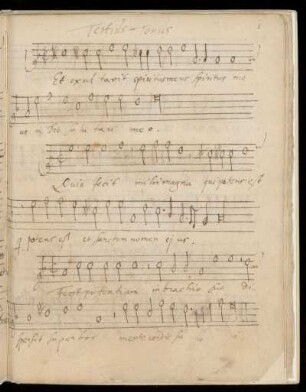 Tertius - Tonus
Et exultavit spiritus meus spiritus me
us in deo salutari meo.
Quia fecit mihi magna qui potens est
q potens est et sanctum nomen ejus.
Fecit potentiam in brachio suo di
spersit superbos mente cordis su